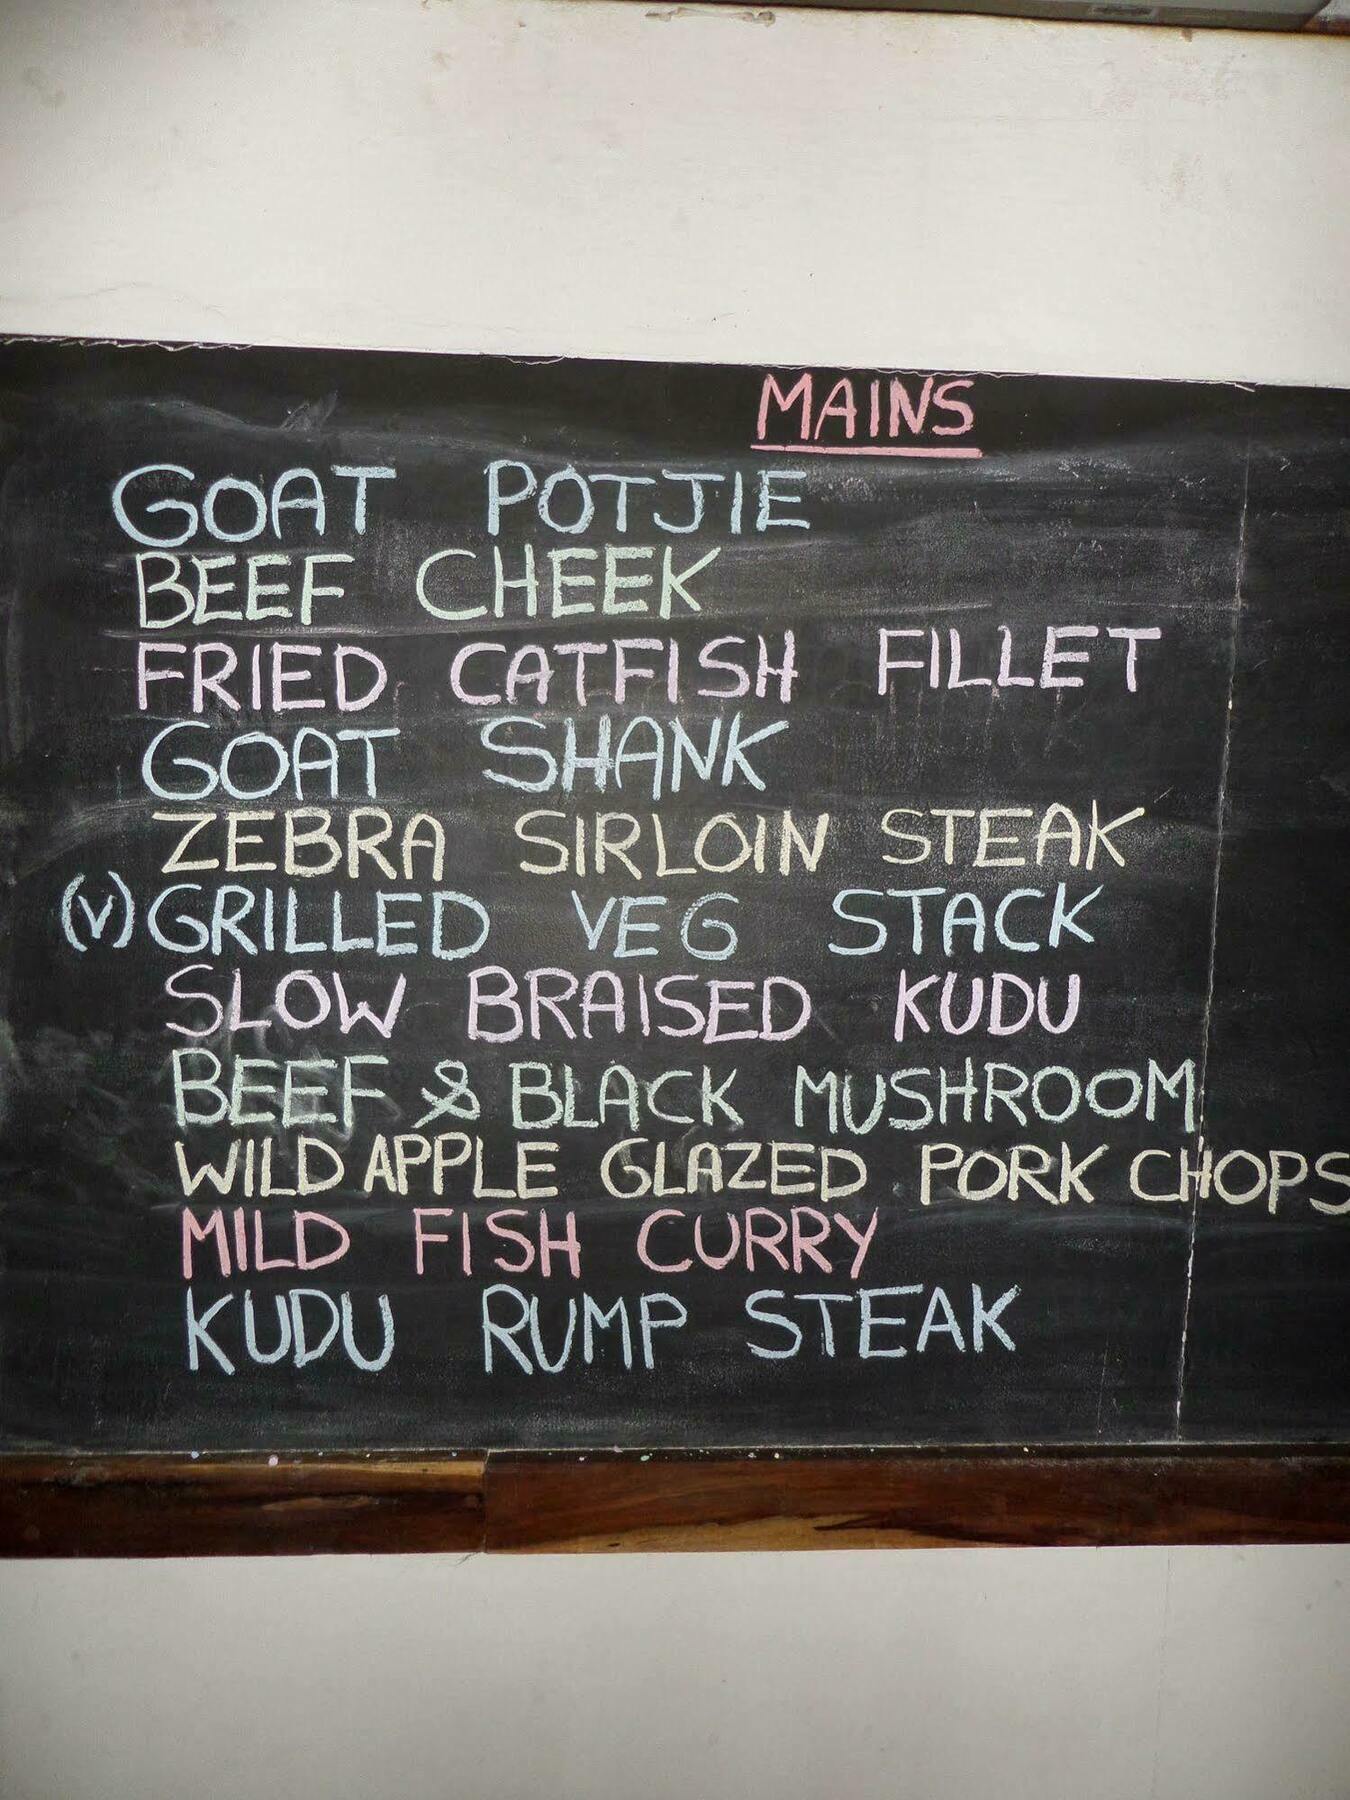 MAINS
GOAT POTJIE
BEEF CHEEK
FRIED CATFISH FILLET
GOAT SHANK
ZEBRA SIRLOIN STEAK
(V) GRILLED VEG STACK
SLOW BRAISED KUDU
BEEF & BLACK MUSHROOM
WILD APPLE GLAZED PORK CHOPS
MILD FISH CURRY
KUDU RUMP STEAK